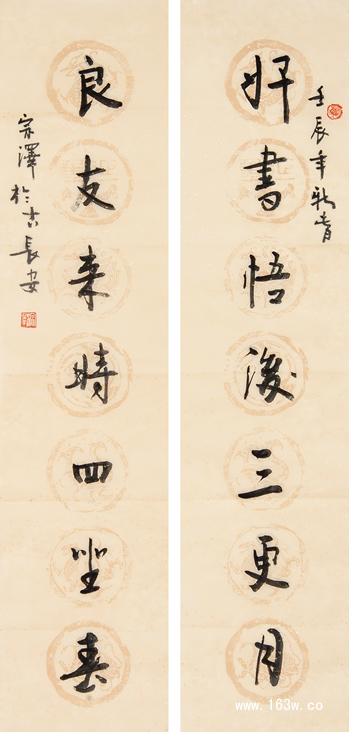 壬辰年
好書悟後三更月
良友来時四坐春
宗澤於古長安
www.163w.com